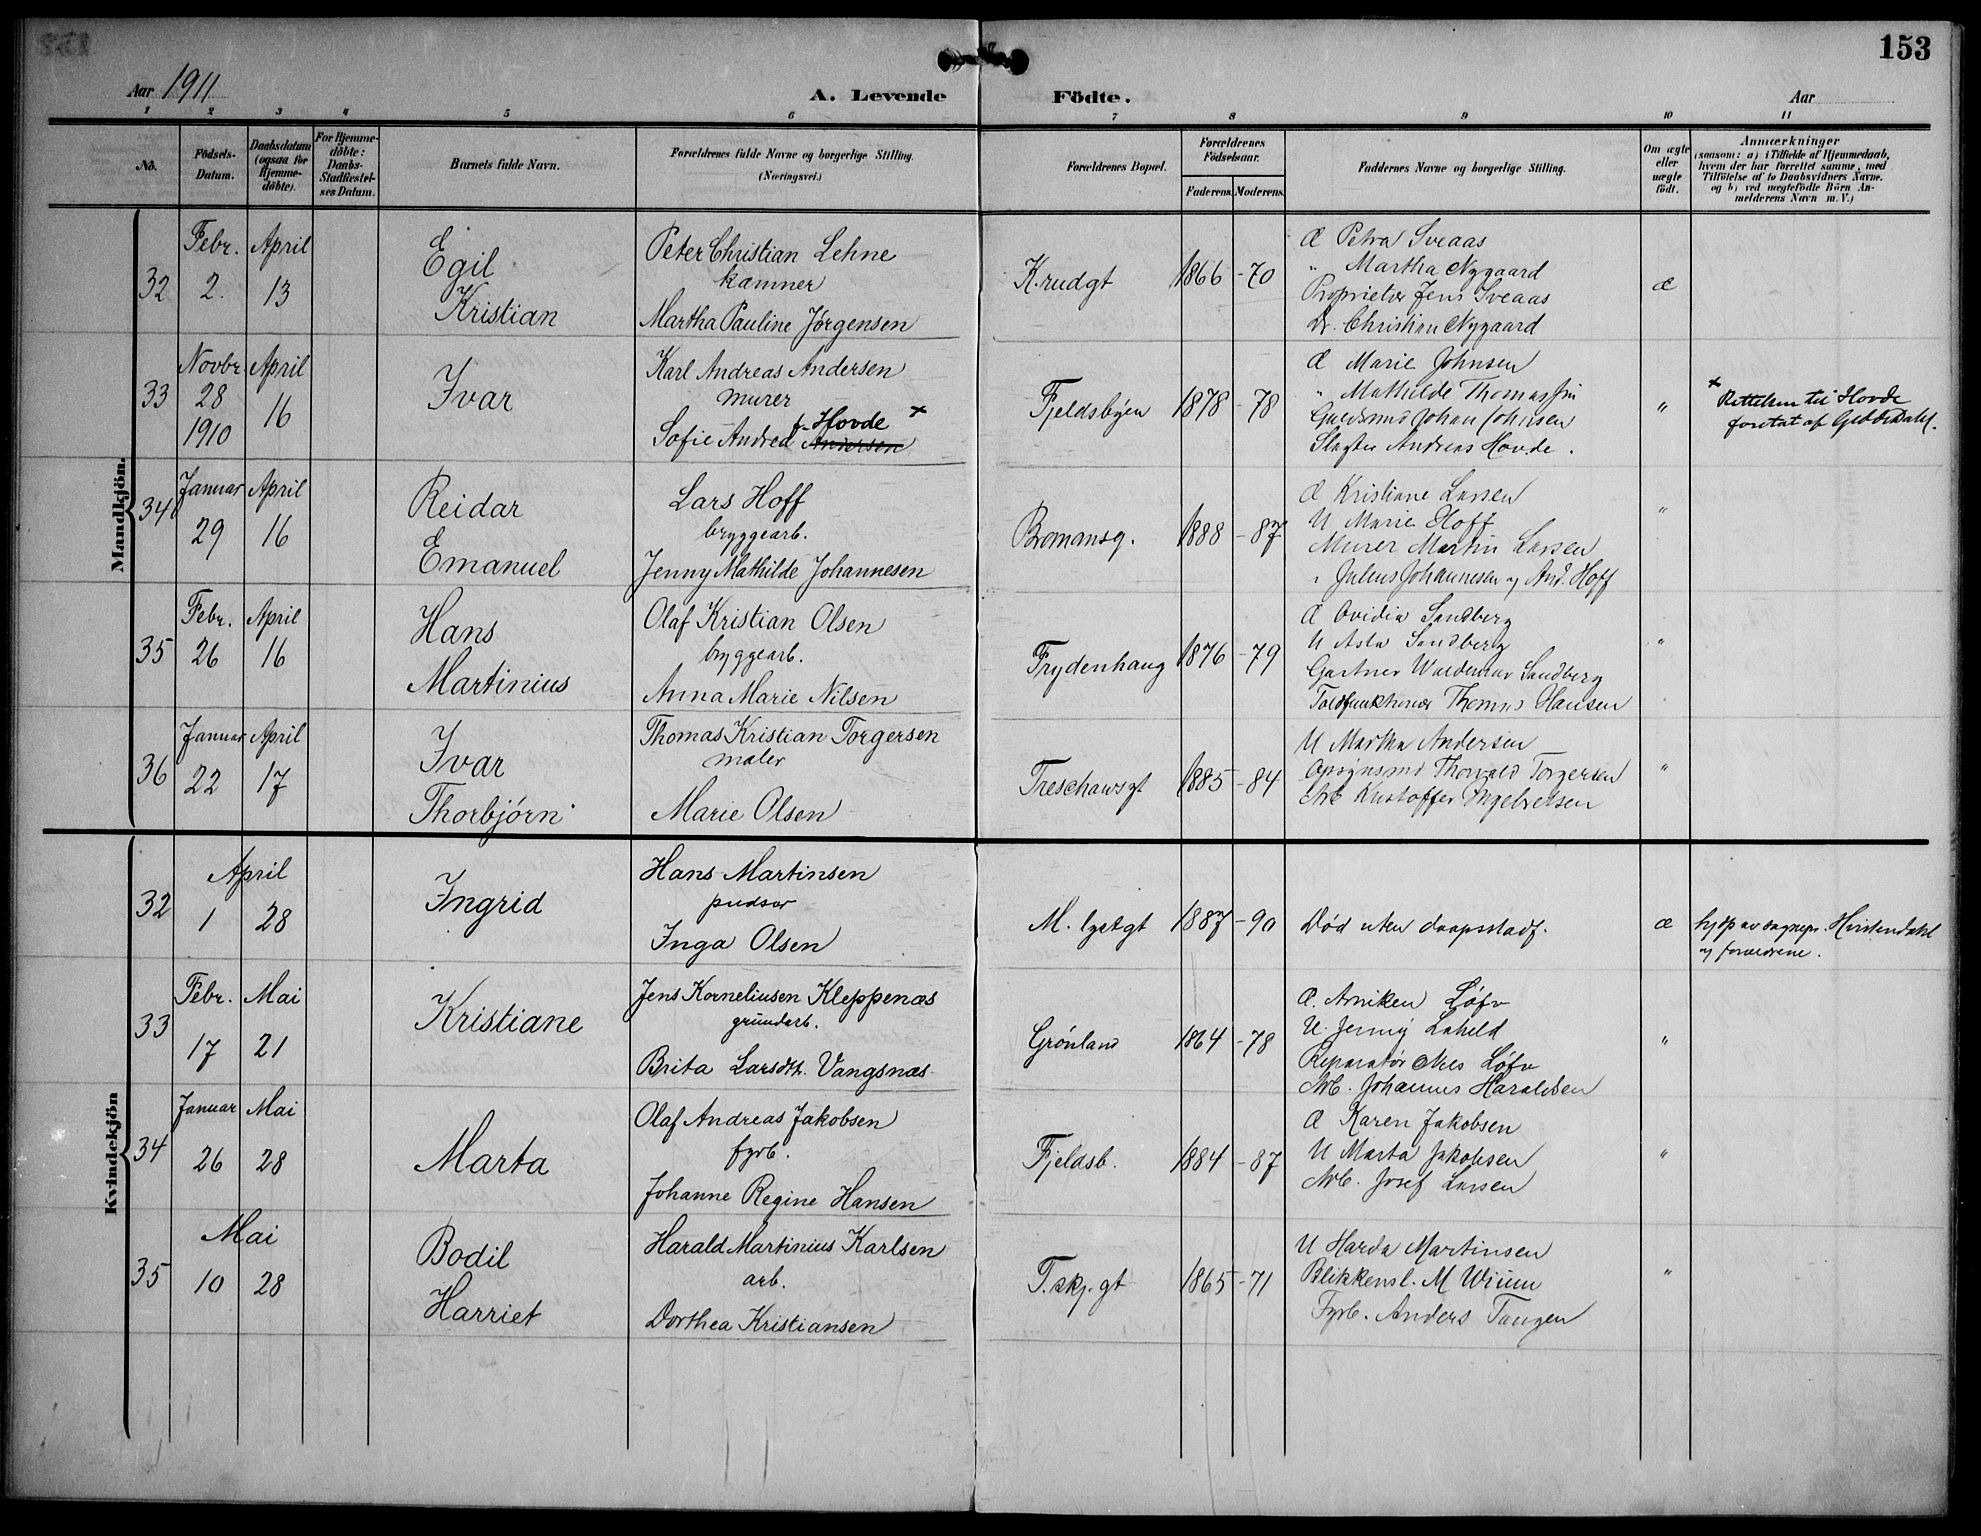 153
Aar 1911
A. Levende Födte.
Aar
1 2 3 4 5 6 7 8 9 10 11
No.
Födsels-Datum.
Daabsdatum (ogsaa for Hjemmedöbte).
For Hjemmedöbte: Daabs-Stadfæstelses Datum.
Barnets fulde Navn.
Forældrenes fulde Navne og borgerlige Stilling. (Næringsvei.)
Forældrenes Bopæl.
Forældrenes Födselsaar.
Faderens. Moderens.
Faddernes Navne og borgerlige Stilling.
Om ægte eller uægte födt.
Anmærkninger
(saasom: a) i Tilfælde af Hjemmedaab, hvem der har forrettet samme, med Tilföielse af to Daabsvidners Navne, og b) ved uægtefödte Börn Anmelderens Navn m. V.)
Mandkjön.
32 Febr. 2. April 13
Egil Kristian
Peter Christian Lehne
kæmner
Martha Pauline Jørgensen
K.rudgt 1866 -70
Æ Petra Sveaas
" Martha Nygaard
Proprietær Jens Sveaas
Dr. Christian Nygaard
æ
33 Novbr 28 1910 April 16
Ivar
Karl Andreas Andersen
murer
Sofie Andrea f. Hovde x Andersen
Fjeldsbyen 1878 -78
Æ Marie Johnsen
" Mathilde Thomassen
Guldsmed Johan Johnsen
Slagter Andreas Hovde.
"
x Rettelsen til Hovde
foretat af
34 Januar 29 April 16
Reidar Emanuel
Lars Hoff
bryggearb.
Jenny Mathilde Johannesen
Bromansg. 1888 -87
Æ Kristiane Larsen
U Marie Hoff
Murer Martin Larsen
" Julius Johannesen og And. Hoff
"
35 Febr. 26 April 16
Hans Martinius
Olaf Kristian Olsen
bryggearb.
Anna Marie Nilsen
Frydenhaug 1876 -79
Æ Ovidia Sandberg
U Asta Sandberg
Gartner Waldemar Sandberg
Toldfunktionær Thomas Hansen
"
36 Januar 22 April 17
Ivar Thorbjørn
Thomas Kristian Torgersen
maler
Marie Olsen
Treschowsgt 1885 -84
U Martha Andersen
Opsynsmd Thorvald Torgersen
Arb Kristoffer Ingebretsen
"
Kvindekjön
32 April 1 28
Ingrid
Hans Martinsen
pudser
Inga Olsen
M. lystgt 1887 -90
Død uten daapsstadf.
æ
hjdp av sognepr. Hvistendahl
og forældrene.
33 Febr. 17 Mai 21
Kristiane
Jens Korneliusen Kleppenæs
grundarb.
Brita Larsdtr. Vangsnæs
Grønland 1864 -78
Æ. Løfv
U. Jenny
Reparatør Nils Løfv
Arb. Johannes Haraldsen
"
34 Januar 26 Mai 28
Marta
Olaf Andreas Jakobsen
fyrb.
Johanne Regine Hansen
Fjeldsb. 1884 -87
Æ Karen Jakobsen
U Marta Jakobsen
Arb. Josef Larsen
"
35 Mai 10 28
Bodil Harriet
Harald Martinius Karlsen
arb.
Dorthea Kristiansen
T. skj. gt 1865 -71
U Harda Martinsen
Blikkensl. M Wiium
Fyrb. Anders Tangen
"